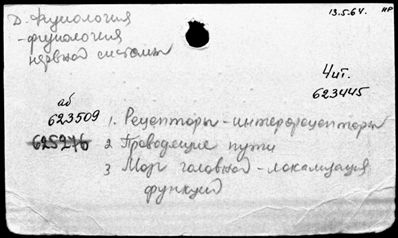 13.5.64. нр
Д. Физиология
-физиология
нервной системы
Чит.
623445
аб
623509 1. Рецепторы-интерорецепторы
625276 2 Проводящие пути
3 Мозг головной-локализация
функций